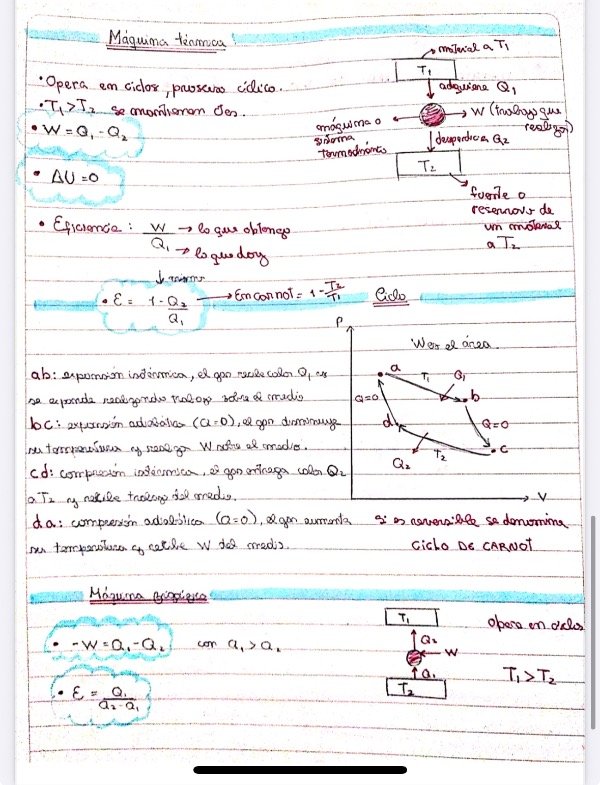 Máquina térmica
material a T₁
T₁
adquiere Q₁
• Opera en ciclos, proceso cíclico.
• T₁ > T₂ se mantienen ctes.
• W = Q₁ - Q₂
máquina o
sistema
termodinámico
W (trabajo que
realiza)
desperdicia Q₂
T₂
• ΔU = 0
fuente o
reservorio de
un material
a T₂
• Eficiencia: W → lo que obtengo
Q₁ → lo que doy
• ε = 1 - Q₂/Q₁ → En carnot = 1 - T₂/T₁
Ciclo
P
W es el área.
a
T₁
Q₁
b
Q=0
d
Q=0
c
T₂
Q₂
V
ab: expansión isotérmica, el gas recibe calor Q₁ y
se expande realizando trabajo sobre el medio
bc: expansión adiabática (Q=0), el gas disminuye
su temperatura y realiza W sobre el medio.
cd: compresión isotérmica, el gas entrega calor Q₂
a T₂ y recibe trabajo del medio.
da: compresión adiabática (Q=0), el gas aumenta
su temperatura y recibe W del medio.
Si es reversible se denomina
CICLO DE CARNOT
Máquina frigorífica
T₁
Q₂
W
Q₁
T₂
opera en ciclos
T₁ > T₂
• -W = Q₁ - Q₂ con Q₁ > Q₂
• ε = Q₁/Q₂-Q₁